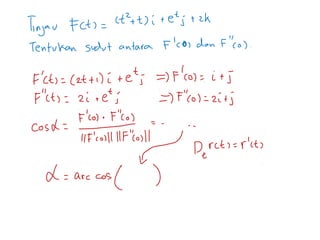 Tinjau F(t) = (t²+t) i + e^t j + 2k
Tentukan sudut antara F'(0) dan F''(0).
F'(t) = (2t+1) i + e^t j => F'(0) = i + j
F''(t) = 2i + e^t j => F''(0) = 2i + j
cos α = F'(0) · F''(0) / ||F'(0)|| ||F''(0)|| = - . . .
D_t r(t) = r'(t)
α = arc cos ( )